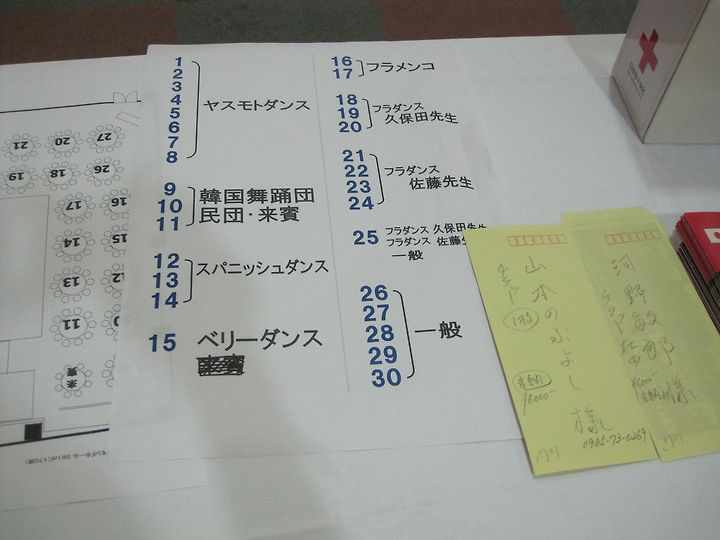 1
2
3
4
5
6
7
8
ヤスモトダンス
9
10
11
韓国舞踊団
民団・来賓
12
13
14
スパニッシュダンス
15 ベリーダンス
16
17
フラメンコ
18
19
20
フラダンス
久保田先生
21
22
23
24
フラダンス
佐藤先生
25
フラダンス 久保田先生
フラダンス 佐藤先
一般
26
27
28
29
30
一般
27
20
21
26
18
19
16
17
15
14
13
11
来賓
モンドホール 561㎡(170坪)
山本のぶよし様
1枚
未納
6000-
河野
様
6000-
未納
0985-73-0269